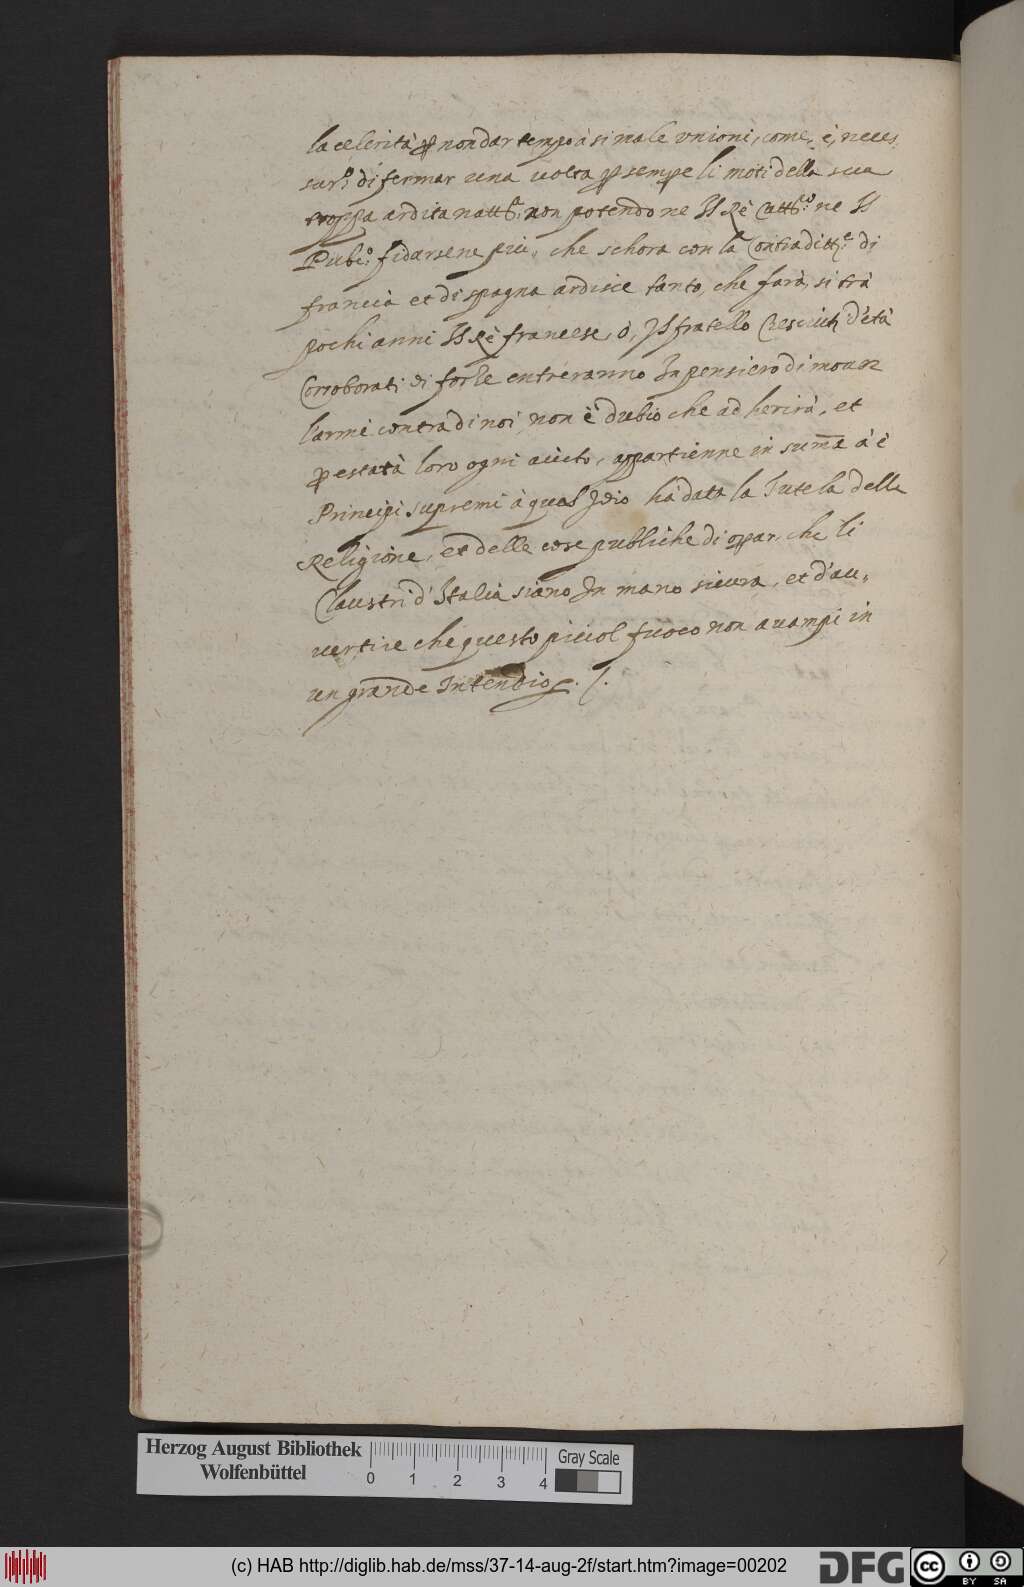 la celerità p non dar tempo à si male unioni, come, è, neces
sarᵒ di fermar una uolta p sempe li moti della sua
troppa ardita nattᵃ, non potendo ne Il Rè Cattᶜᵒ: ne Il
Pubᶜᵒ: fidarsene più, che s'hora con la Contradittᵉ: di
francia et di spagna ardisce tanto, che farà, si trà
pochi anni Il Rè francese, ò, Il fratello Cresciuti d'età
Corroborati di forze entreranno In pensiero di mouer
l'armi contra di noi, non è dubio che adherirà, et
p estatà loro ogni aiuto, appartienne in summa à i
Principi supremi à qual Idio ha data la Tutela della
Religione, et delle cose publiche di oppar, che li
Claustri d'Italia siano In mano sicura, et d'au,,
uertire che questo picciol fuoco non auampi in
un grande Intendio. /.
Herzog August Bibliothek
Wolfenbüttel
0 1 2 3 4
Gray Scale
(c) HAB http://diglib.hab.de/mss/37-14-aug-2f/start.htm?image=00202
DFG
cc BY SA